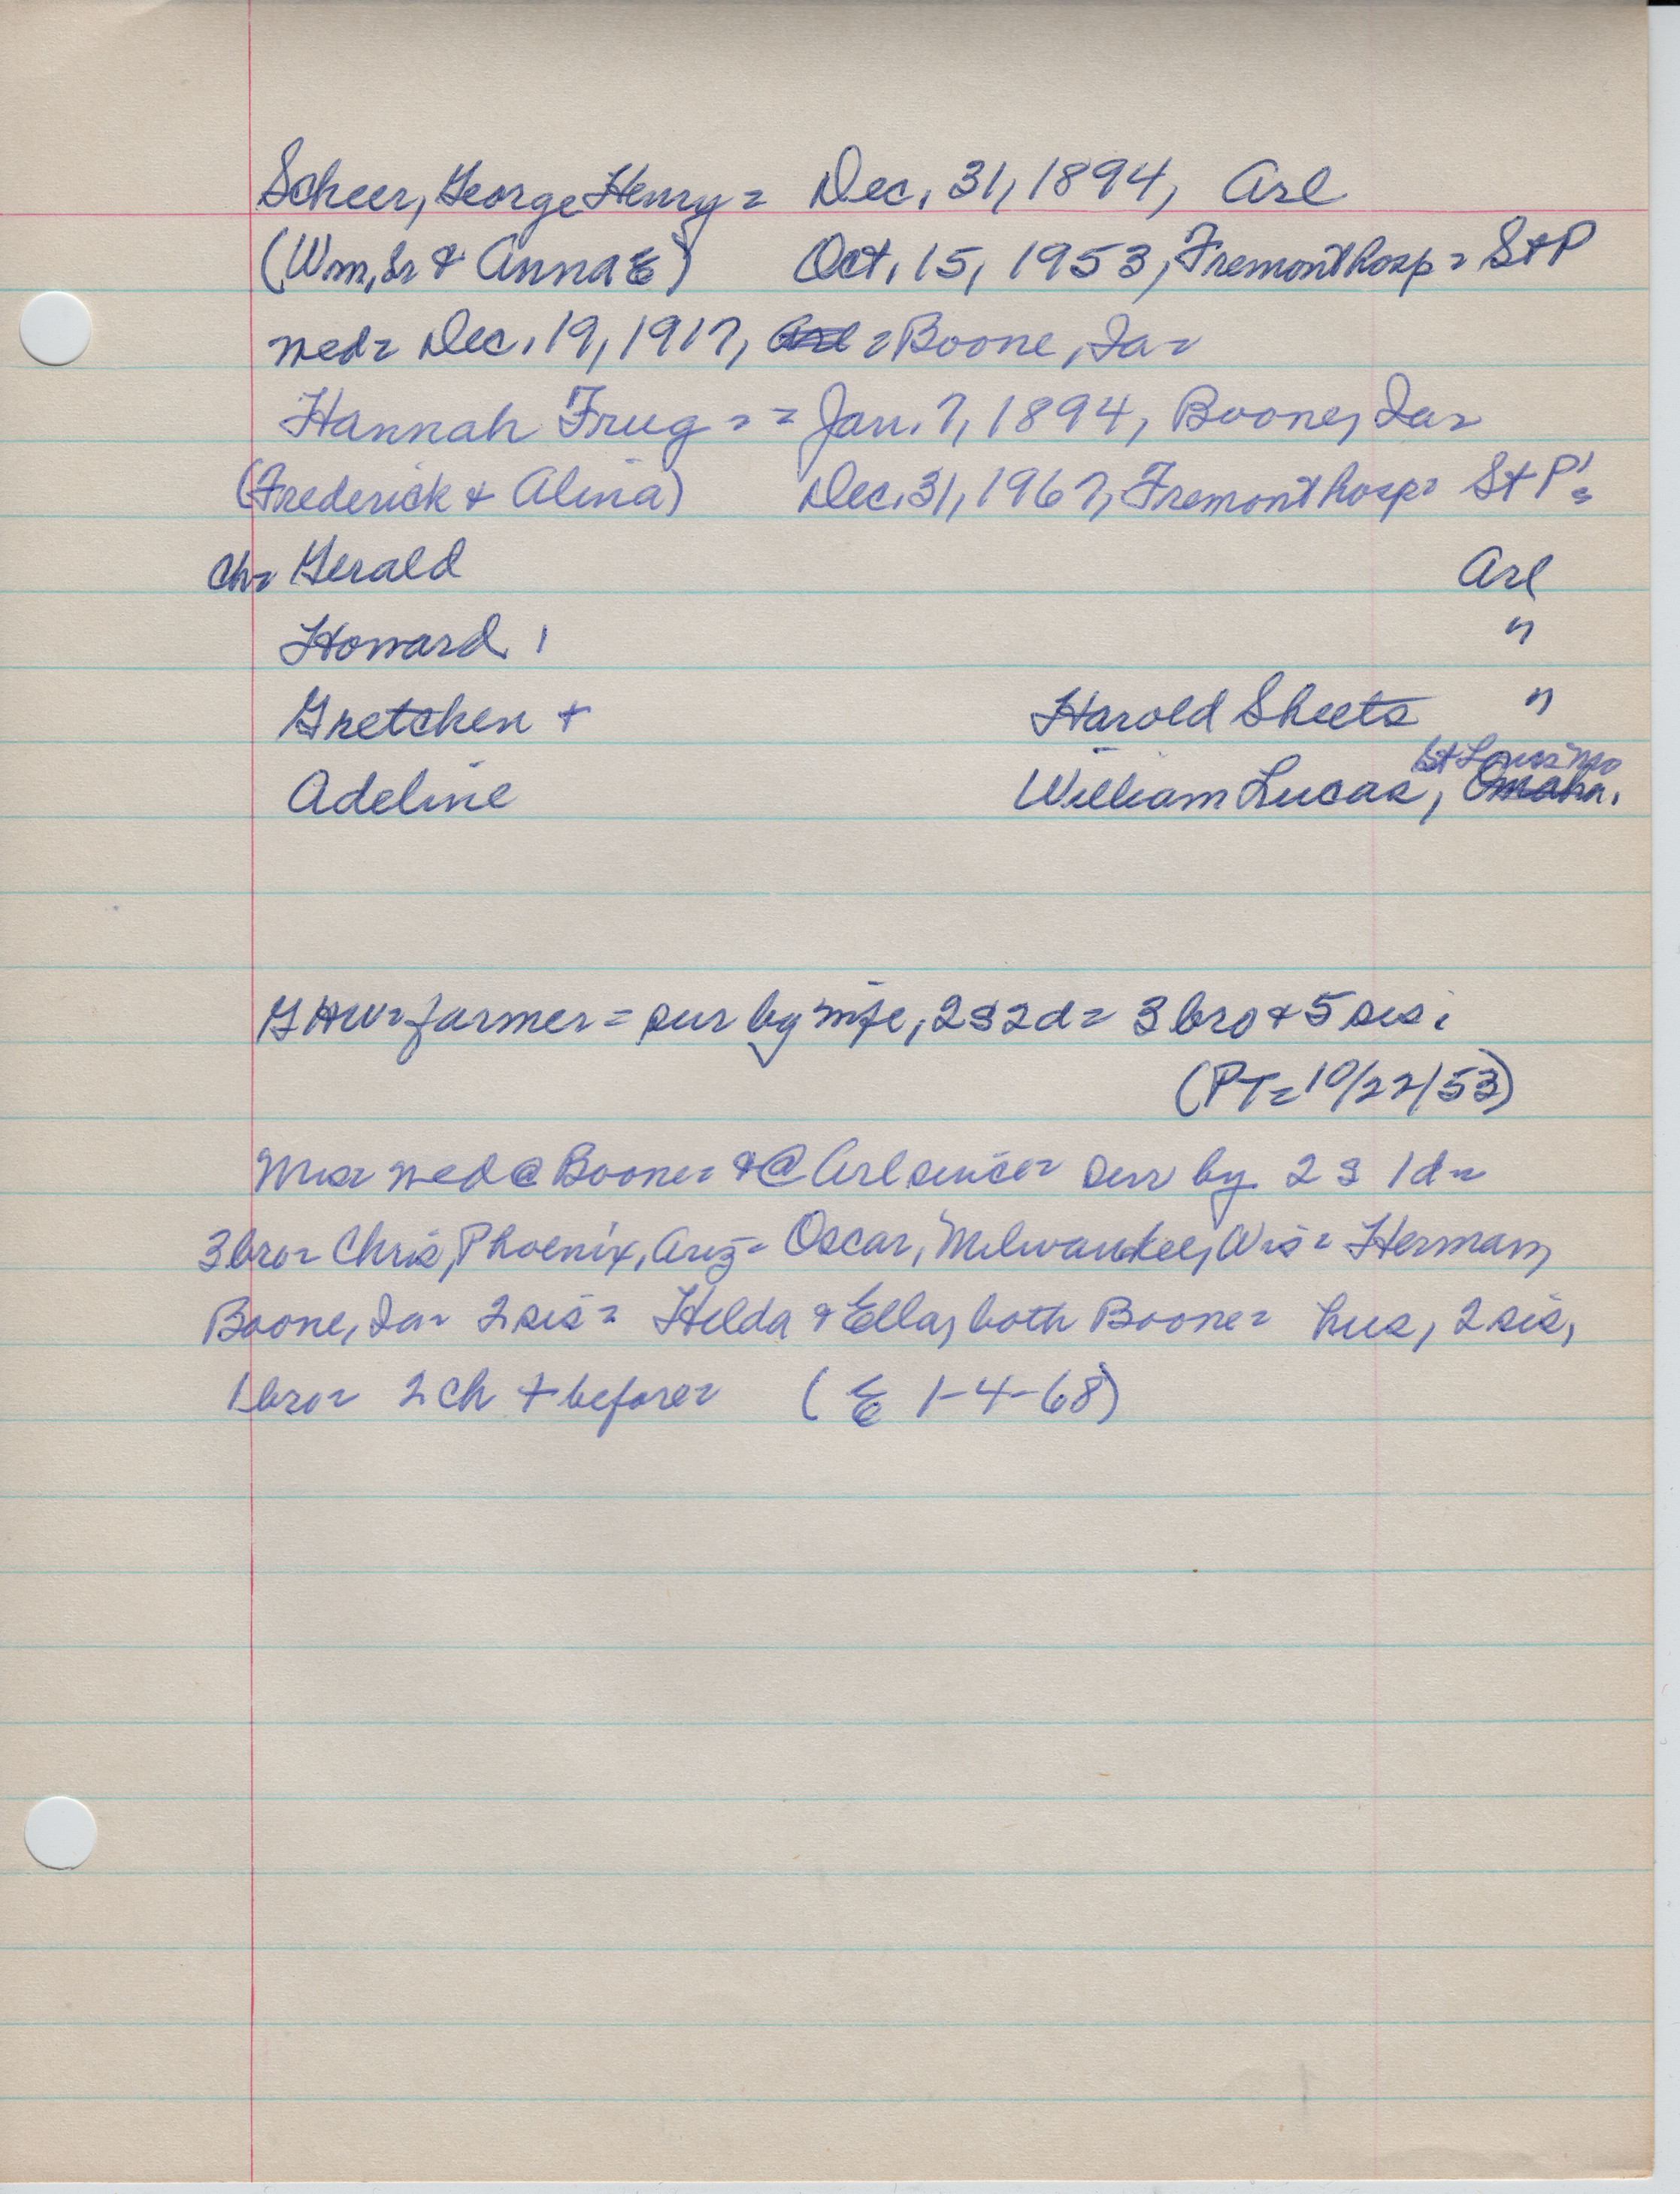 Scheer, George Henry = Dec. 31, 1894, Arl
(Wm, Sr & Anna E) Oct. 15, 1953, Fremont hosp = St P
wed = Dec. 19, 1917, Arl = Boone, Ia =
Hannah Frug = = Jan. 7, 1894, Boone, Ia =
(Frederick & Alina) Dec. 31, 1967, Fremont hosp = St P's
Ch = Gerald Arl
Howard "
Gretchen + Harold Sheets "
St Louis Mo
Adeline William Lucas, Omaha.
G H W = farmer = sur by wife, 2s 2d = 3 bro & 5 sis.
(PT = 10/22/53)
Mrs = wed @ Boone = & @ Arl since = surv by 2 s 1d =
3 bro = Chris, Phoenix, Ariz = Oscar, Milwaukee, Wis = Herman,
Boone, Ia = 2 sis = Hilda & Ella, both Boone = hus, 2 sis,
1 bro = 2 ch + before = (E 1-4-68)